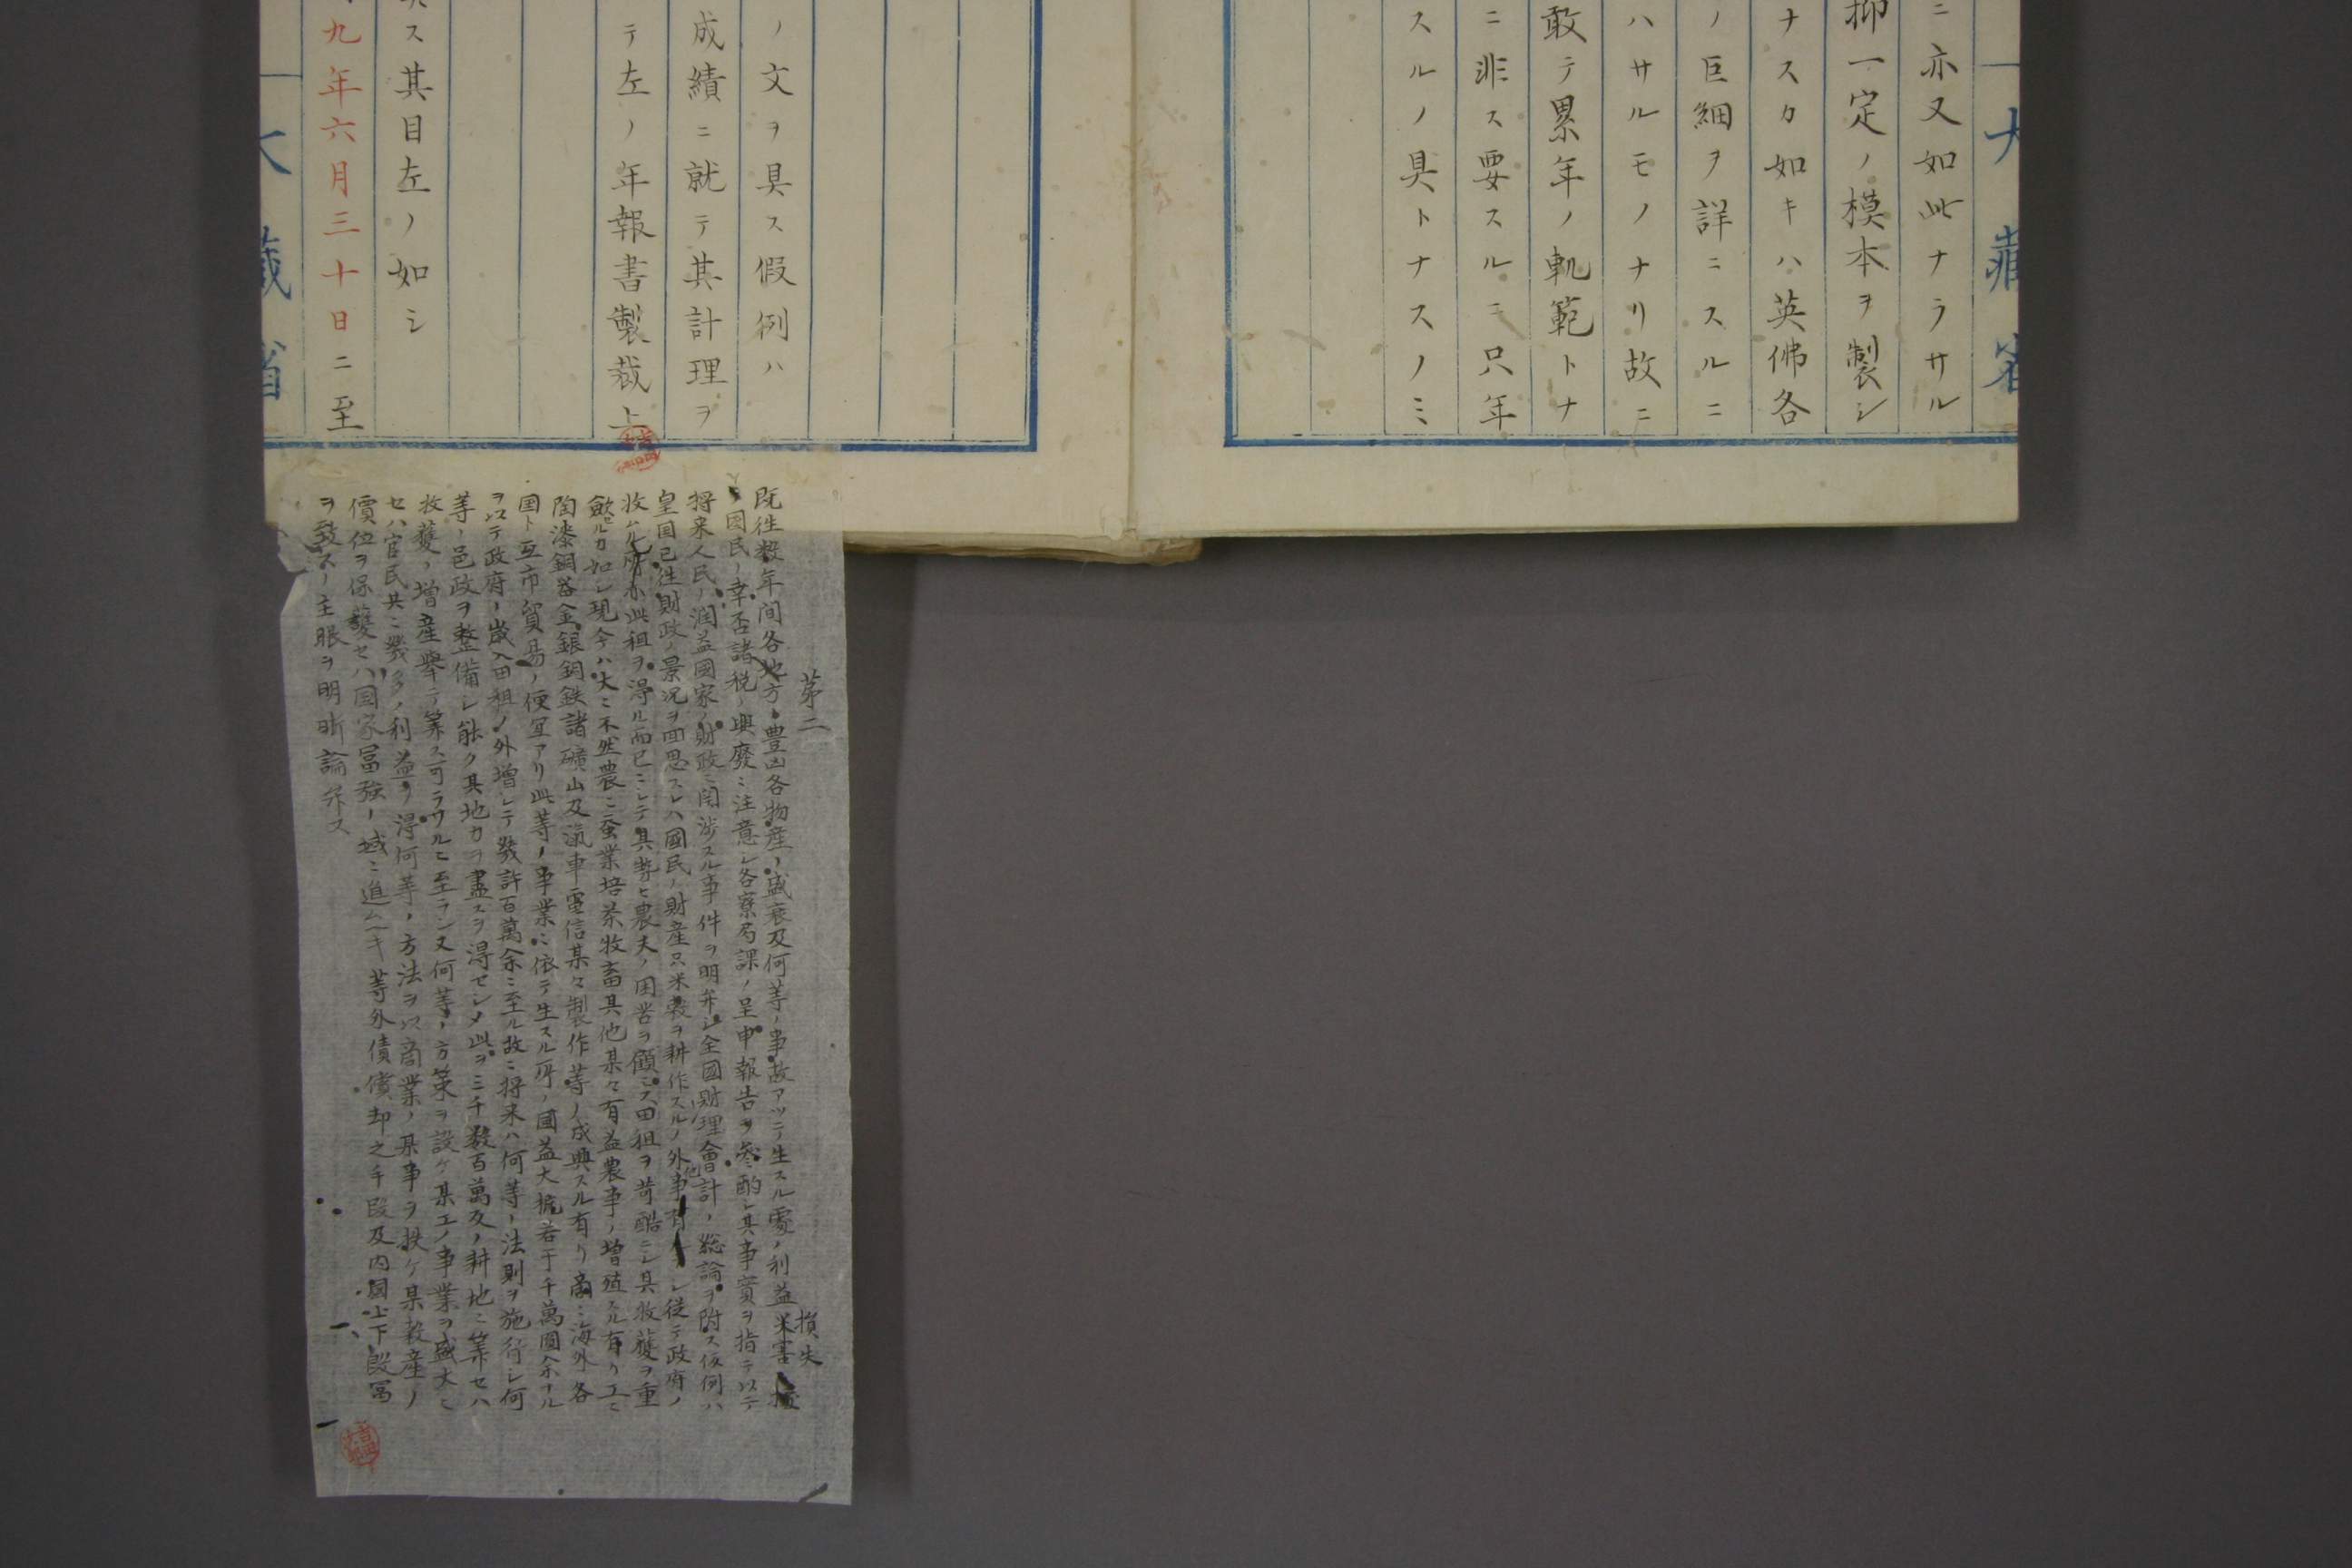 ニ亦又如此ナラサル
抑一定ノ模本ヲ製シ
ナスカ如キハ英佛各
ノ巨細ヲ詳ニスルニ
ハサルモノナリ故ニ
敢テ累年ノ軌範トナ
ニ非ス要スルニ只年
スルノ具トナスノミ
ノ文ヲ具ス假例ハ
成績ニ就テ其計理ヲ
テ左ノ年報書製裁上
ス其目左ノ如シ
九年六月三十日ニ至
大藏省
第二
既往数年间各地方ノ豊凶各物産ノ盛衰及何等ノ事故アツテ生スル處ノ利益損失
國民ノ幸否諸税ノ興廢ニ注意シ各寮局課ノ呈申報告ヲ参酌シ其事實ヲ指テ以テ
将来人民ノ潤益國家ノ財政ニ関渉スル事件ヲ明弁シ全國財理會計ノ総論ヲ附ス仮例ハ
皇国已往財政ノ景況ヲ回思スレハ國民ノ財産只米穀ヲ耕作スルノ外他事シ従テ政府ノ
收ムル所亦此租ヲ淂ル而已ニシテ其弊ヒ農夫ノ困苦ヲ顧ミス田租ヲ苛酷ニシ其收獲ヲ重
歛セルカ如シ現今ハ大ニ不然農ニ蚕業培茶牧畜其他某々有益農事ノ増殖スル有リ工ニ
陶漆銅器金銀銅鉄諸礦山及滊車電信某々製作等ノ成興スル有リ商ニ海外各
国ト互市貿易ノ便宜アリ此等ノ事業ニ依テ生スル所ノ國益大概若干千萬圓余ナル
ヲ以テ政府ノ歳入田租ノ外増シテ幾許百萬余ニ至ル故ニ将来ハ何等ノ法則ヲ施行シ何
等ノ邑政ヲ整備シ能ク其地力ヲ盡スヲ淂セシメ此ヲ三千数百萬反ノ耕地ニ算セハ
收獲ノ増産挙テ算ス可ラサルニ至ラン又何等ノ方策ヲ設ケ某工ノ事業ヲ盛大ニ
セハ官民共ニ幾多ノ利益ヲ淂何等ノ方法ヲ以商業ノ某事ヲ扶ケ某穀産ノ
價位ヲ保護セハ国家冨強ノ域ニ進ムヘキ等外債償却之手段及内國上下殷冨
ヲ致スノ主眼ヲ明晰論弁ス